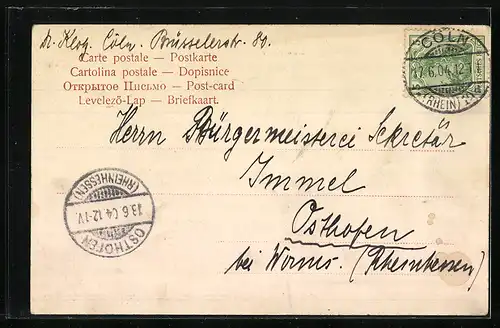 Cöln. Brüsselerstr. 80.
Carte postale — Postkarte
Cartolina postale — Dopisnice
Открытое Письмо — Post-card
Levelező-Lap — Briefkaart.
CÖLN
17.6.04.12
(RHEIN)
Herrn Bürgermeisterei Sekretär
Immel
Osthofen
bei Worms. (Rheinhessen)
(RHEINHESSEN)
6.04.12-1V.
OSTHOFEN